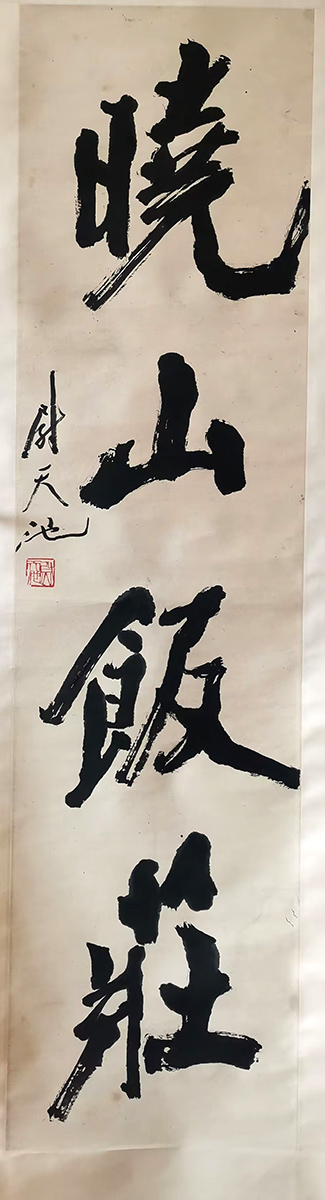 曉山飯莊
尉天池